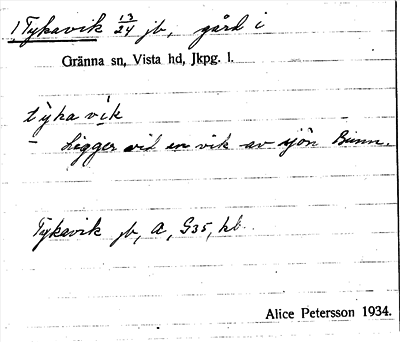 1 Tykavik 13/24 jb, gård i
Gränna sn, Vista hd, Jkpg. l.
tỳka vik
– Ligger vid en vik av sjön Bunn.
Tykavik jb, A, G35, hl.
Alice Petersson 1934.